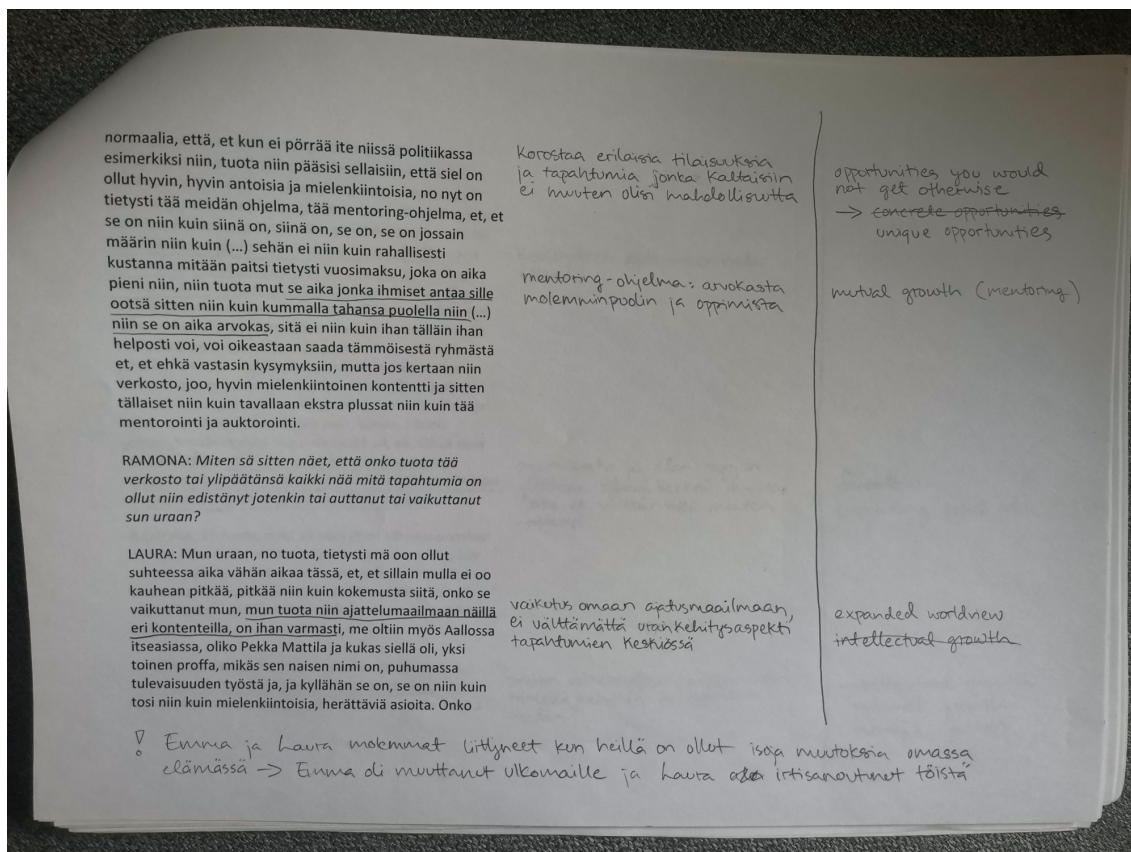 normaalia, että, et kun ei pörrää ite niissä politiikassa
esimerkiksi niin, tuota niin pääsisi sellaisiin, että siel on
ollut hyvin, hyvin antoisia ja mielenkiintoisia, no nyt on
tietysti tää meidän ohjelma, tää mentoring-ohjelma, et, et
se on niin kuin siinä on, siinä on, se on, se on jossain
määrin niin kuin (...) sehän ei niin kuin rahallisesti
kustanna mitään paitsi tietysti vuosimaksu, joka on aika
pieni niin, niin tuota mut se aika jonka ihmiset antaa sille
ootsä sitten niin kuin kummalla tahansa puolella niin (...)
niin se on aika arvokas, sitä ei niin kuin ihan tälläin ihan
helposti voi, voi oikeastaan saada tämmöisestä ryhmästä
et, et ehkä vastasin kysymyksiin, mutta jos kertaan niin
verkosto, joo, hyvin mielenkiintoinen kontentti ja sitten
tällaiset niin kuin tavallaan ekstra plussat niin kuin tää
mentorointi ja auktorointi.
RAMONA: Miten sä sitten näet, että onko tuota tää
verkosto tai ylipäätänsä kaikki nää mitä tapahtumia on
ollut niin edistänyt jotenkin tai auttanut tai vaikuttanut
sun uraan?
LAURA: Mun uraan, no tuota, tietysti mä oon ollut
suhteessa aika vähän aikaa tässä, et, et sillain mulla ei oo
kauhean pitkää, pitkää niin kuin kokemusta siitä, onko se
vaikuttanut mun, mun tuota niin ajattelumaailmaan näillä
eri kontenteilla, on ihan varmasti, me oltiin myös Aallossa
itseasiassa, oliko Pekka Mattila ja kukas siellä oli, yksi
toinen proffa, mikäs sen naisen nimi on, puhumassa
tulevaisuuden työstä ja, ja kyllähän se on, se on niin kuin
tosi niin kuin mielenkiintoisia, herättäviä asioita. Onko
Korostaa erilaisia tilaisuuksia
ja tapahtumia jonka kaltaisiin
ei muuten olisi mahdollisuutta
mentoring-ohjelma: arvokasta
molemminpuolin ja oppimista
vaikutus omaan ajatusmaailmaan,
ei välttämättä urankehitysaspekti
tapahtumien keskiössä
opportunities you would
not get otherwise
→ concrete opportunities
unique opportunities
mutual growth (mentoring)
expanded worldview
intellectual growth
! Emma ja Laura molemmat liittyneet kun heillä on ollut isoja muutoksia omassa
elämässä → Emma oli muuttanut ulkomaille ja Laura irtisanoutunut töistä